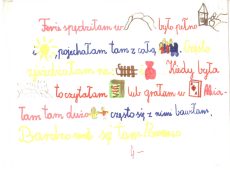 Ferie spędziłam w było pełno
i , pojechałam tam z całą
Kiedy była
to czytałam lub grałam w Mia-
łam tam dużo często się z nimi bawiłam.
Bardzo mi się tam